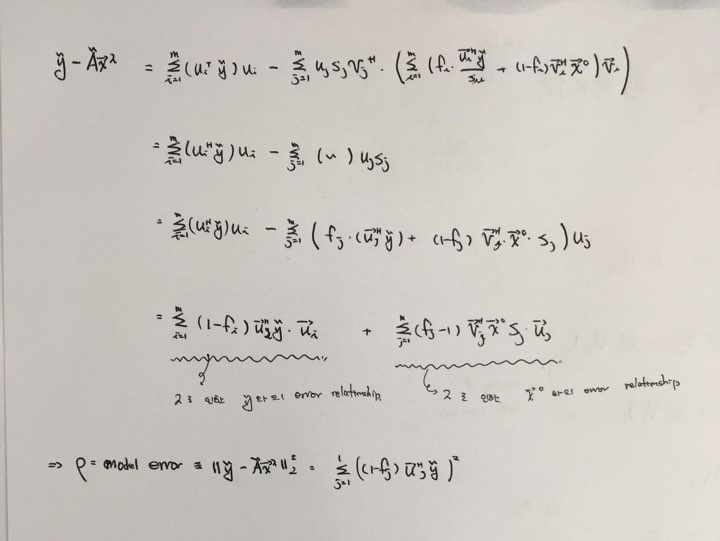 ỹ − Ãx⃗² = Σ_{i=1}^{m} (u_i^T ỹ) u_i − Σ_{j=1}^{m} u_j s_j v_j^H · ( Σ_{i=1}^{m} (f_i · (u⃗_i^H ỹ)/s_i + (1−f_i) v⃗_i^H x⃗⁰) v⃗_i )
= Σ_{i=1}^{m} (u_i^H ỹ) u_i − Σ_{j=1}^{m} (〃) u_j s_j
= Σ_{i=1}^{m} (u_i^H ỹ) u_i − Σ_{j=1}^{m} ( f_j · (u⃗_j^H ỹ) + (1−f_j) v⃗_j^H · x⃗⁰ · s_j ) u_j
= Σ_{i=1}^{m} (1−f_i) u⃗_i^H ỹ · u⃗_i + Σ_{j=1}^{m} (f_j−1) v⃗_j^H x⃗⁰ s_j · u⃗_j
2로 인한 ỹ와의 error relationship
2로 인한 x⃗⁰와의 error relationship
⇒ ρ = model error ≡ ‖ỹ − Ãx⃗²‖₂² = Σ_{j=1} ((1−f_j) u⃗_j^H ỹ)²